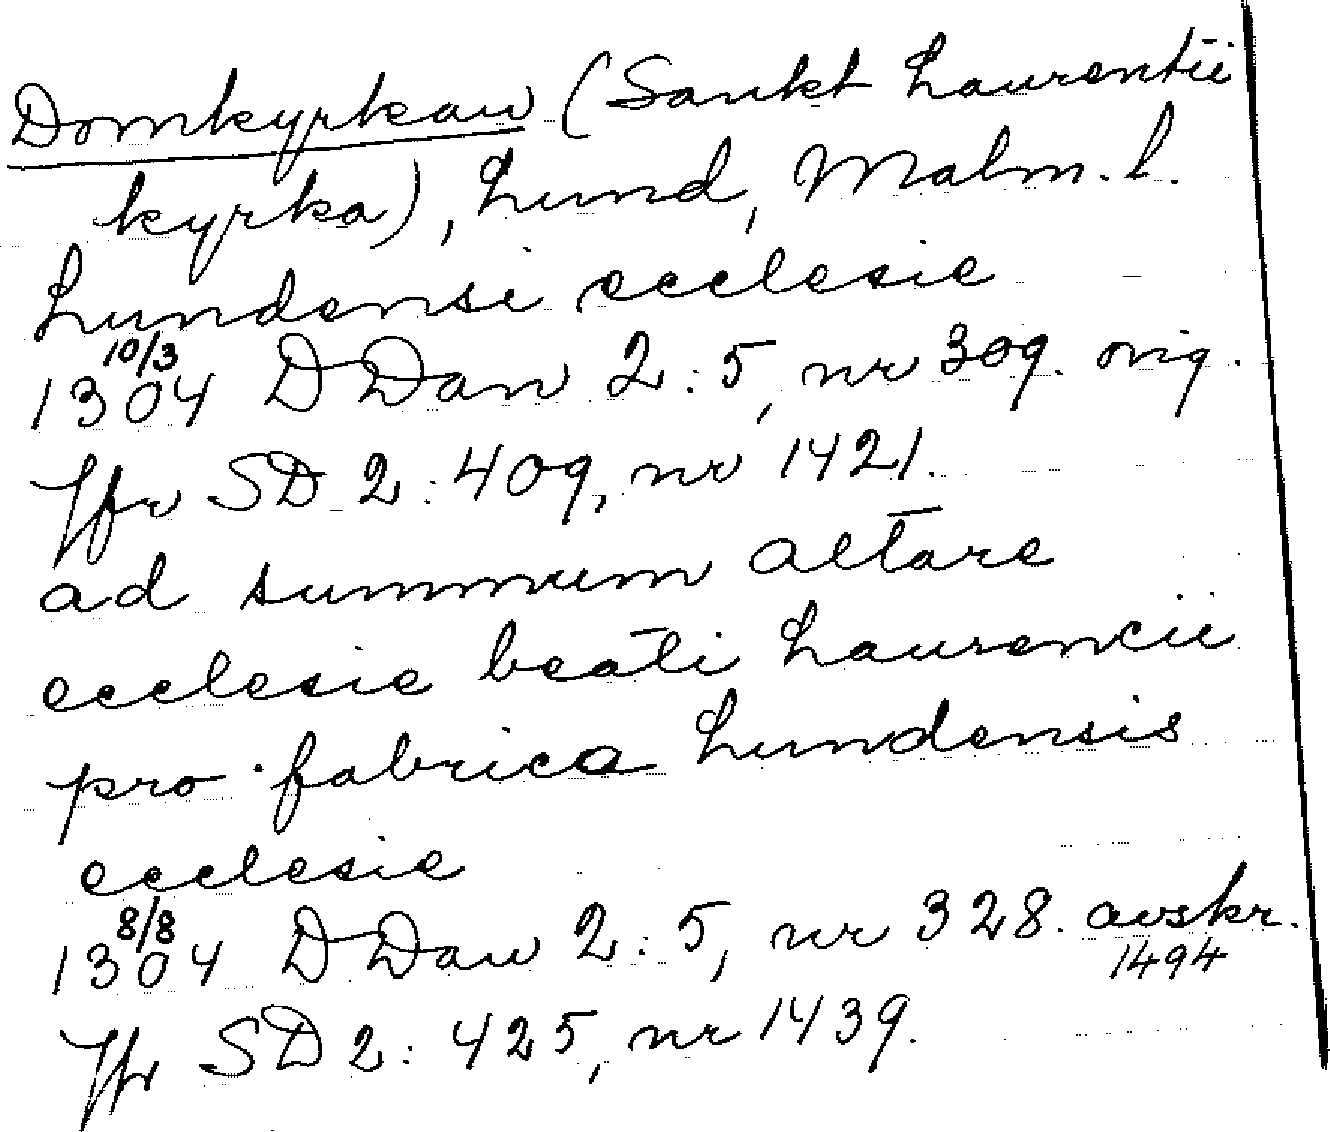 Domkyrkan (Sankt Laurentii
kyrka), Lund, Malm. l.
Lundensi ecclesie
10/3
1304 DDan 2:5, nr 309. orig.
Jfr SD 2:409, nr 1421.
ad summum altare
ecclesie beati Laurencii
pro fabrica Lundensis
ecclesie
8/8
1304 DDan 2:5, nr 328. avskr.
1494
Jfr SD 2:425, nr 1439.